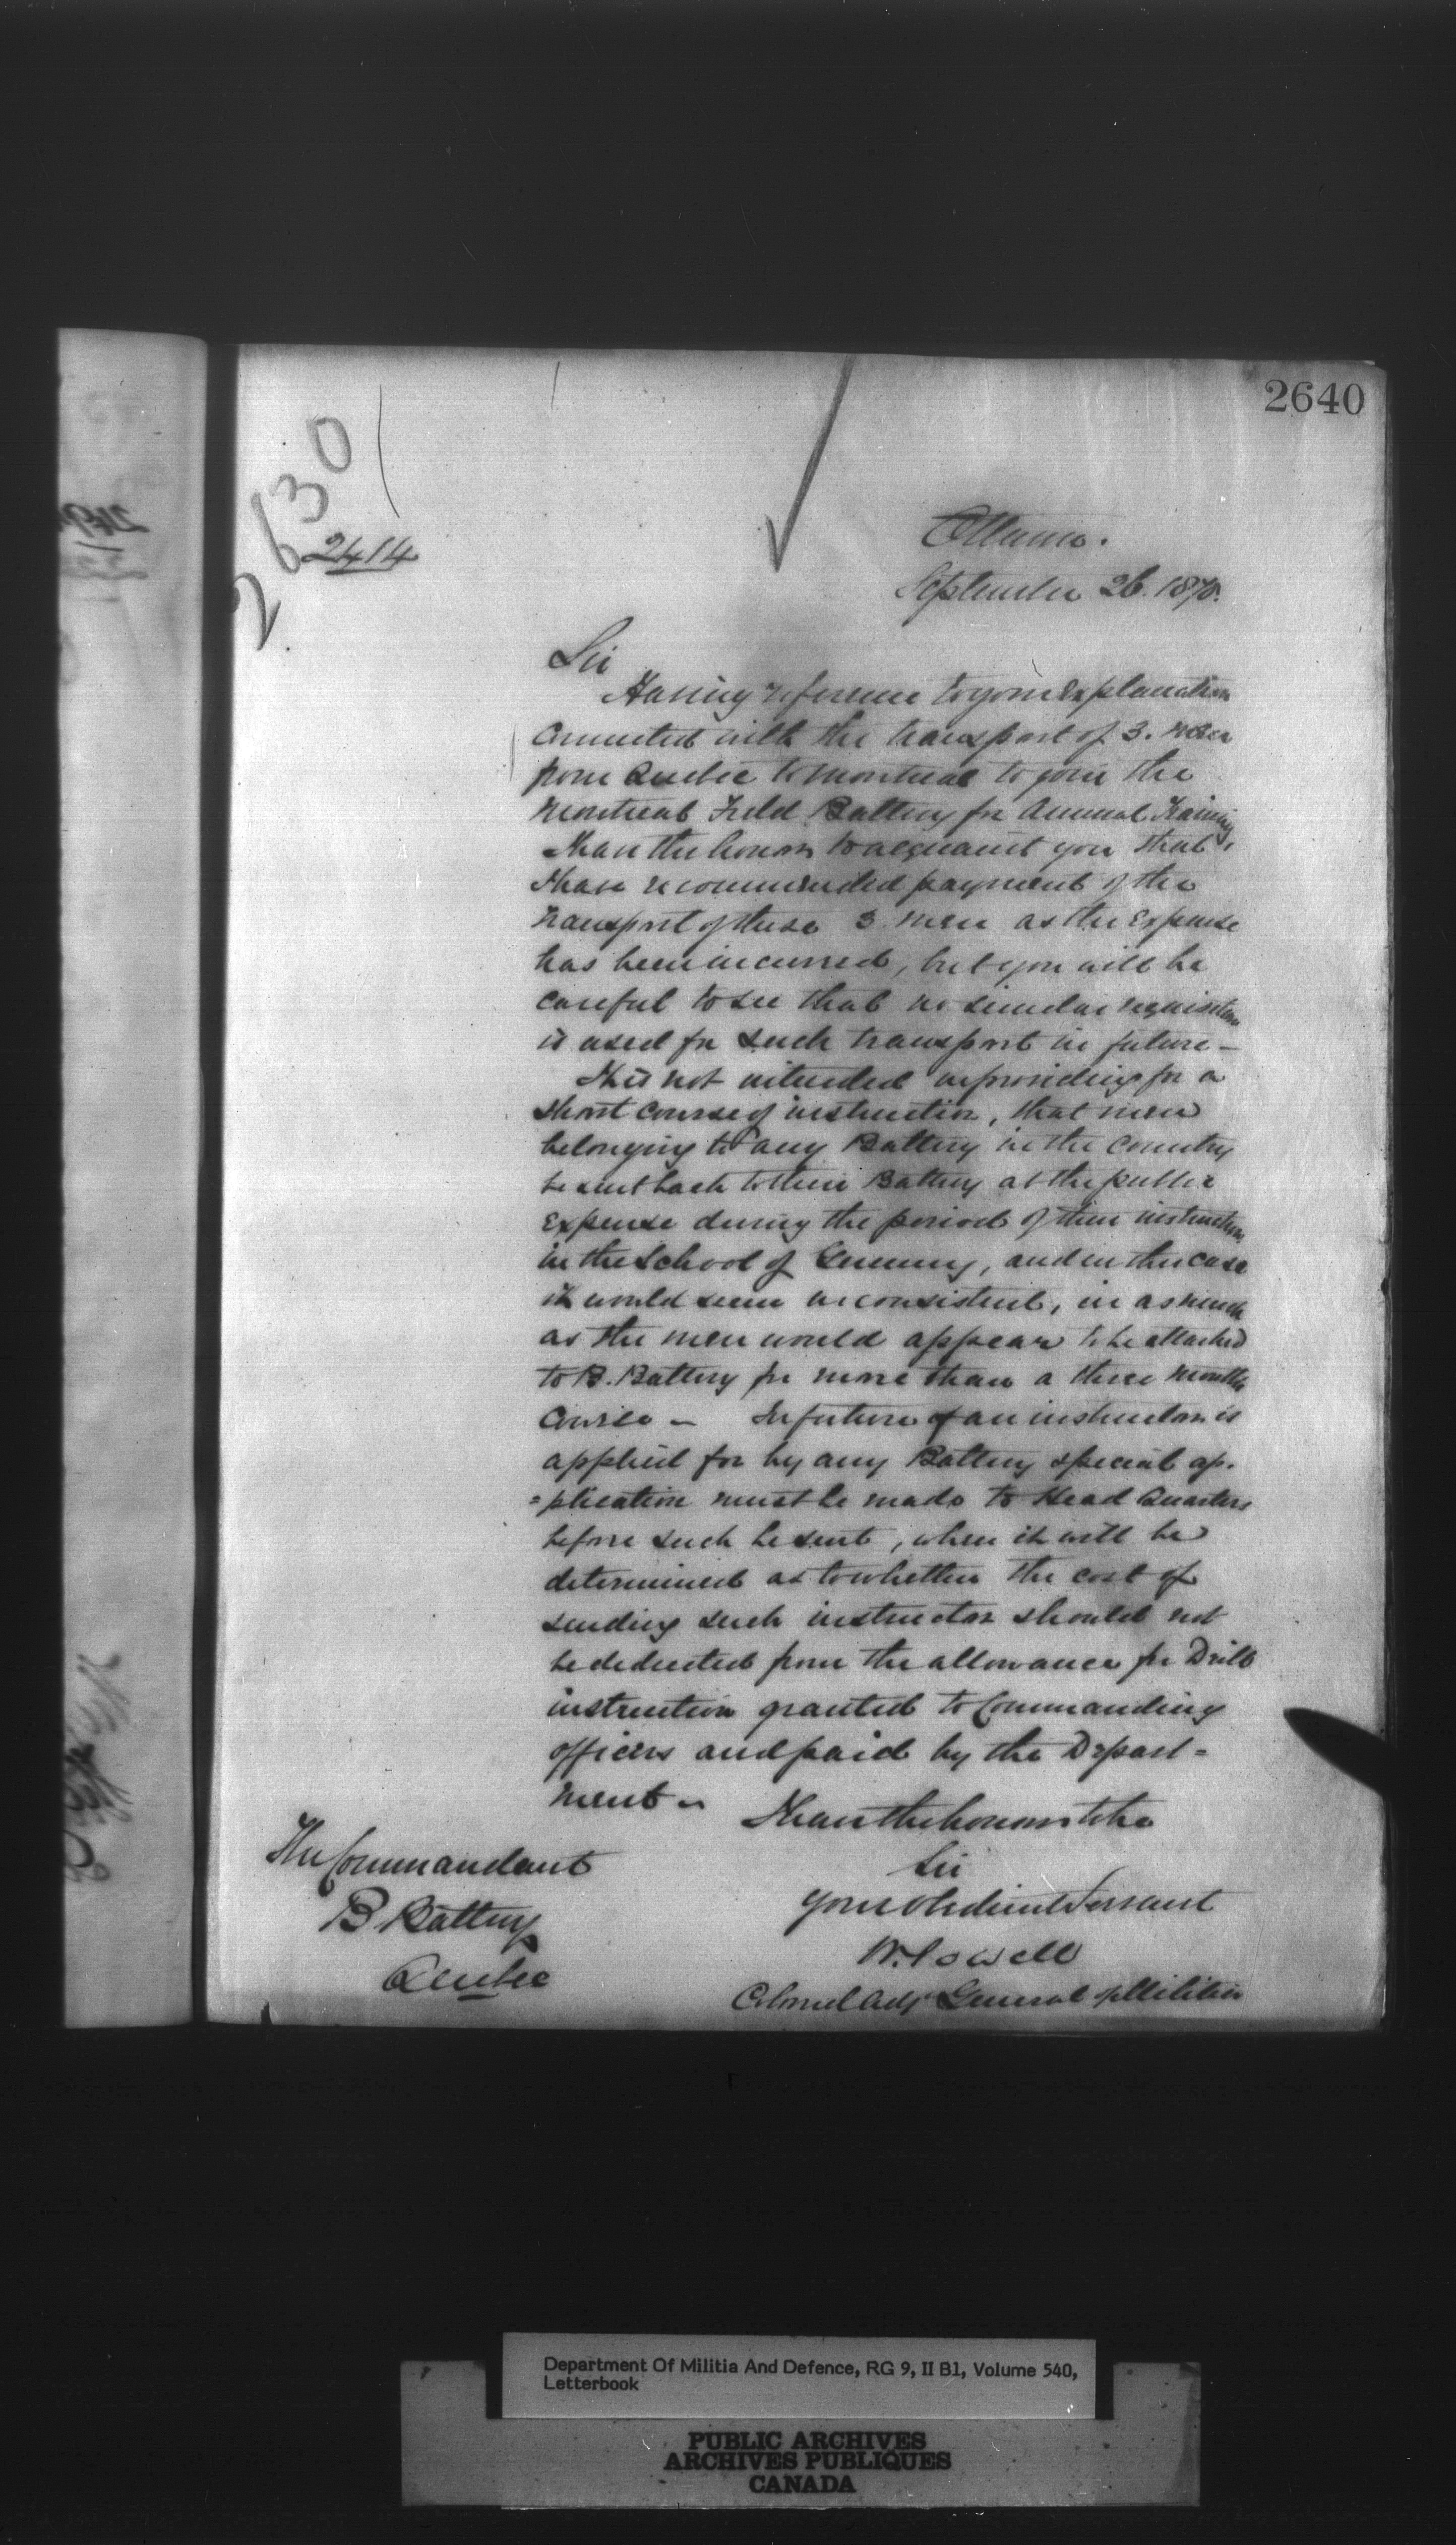 2640
2630
2414
Ottawa.
September 26. 187
Sir
Having reference to your Explanation
Connected with the transport of 3. men
from Quebec to Montreal to join the
Montreal Field Battery for Annual Training
I have the honor to acquaint you that
I have recommended payment of the
transport of these 3. men as the Expense
has been incurred, but you will be
careful to see that no similar requisition
is used for such transport in future -
It is not intended in providing for a
short course of instruction, that men
belonging to any Battery in the Country
be sent back to their Battery at the public
Expense during the period of their instruction
in the School of Gunnery, and in this case
it would seem inconsistent, in as much
as the men would appear to be attached
to B. Battery for more than a three months
Course - In future if an instructor is
applied for by any Battery special ap-
=plication must be made to Head Quarters
before such be sent, when it will be
determined as to whether the cost of
sending such instructor should not
be deducted from the allowance for Drill
instruction granted to Commanding
officers and paid by the Depart=
ment -
I have the honor to be
Sir
Your Obedient Servant
W. Powell
Colonel Adjt General of Militia
The Commandant
B Battery
Quebec
Department Of Militia And Defence, RG 9, II B1, Volume 540,
Letterbook
PUBLIC ARCHIVES
ARCHIVES PUBLIQUES
CANADA